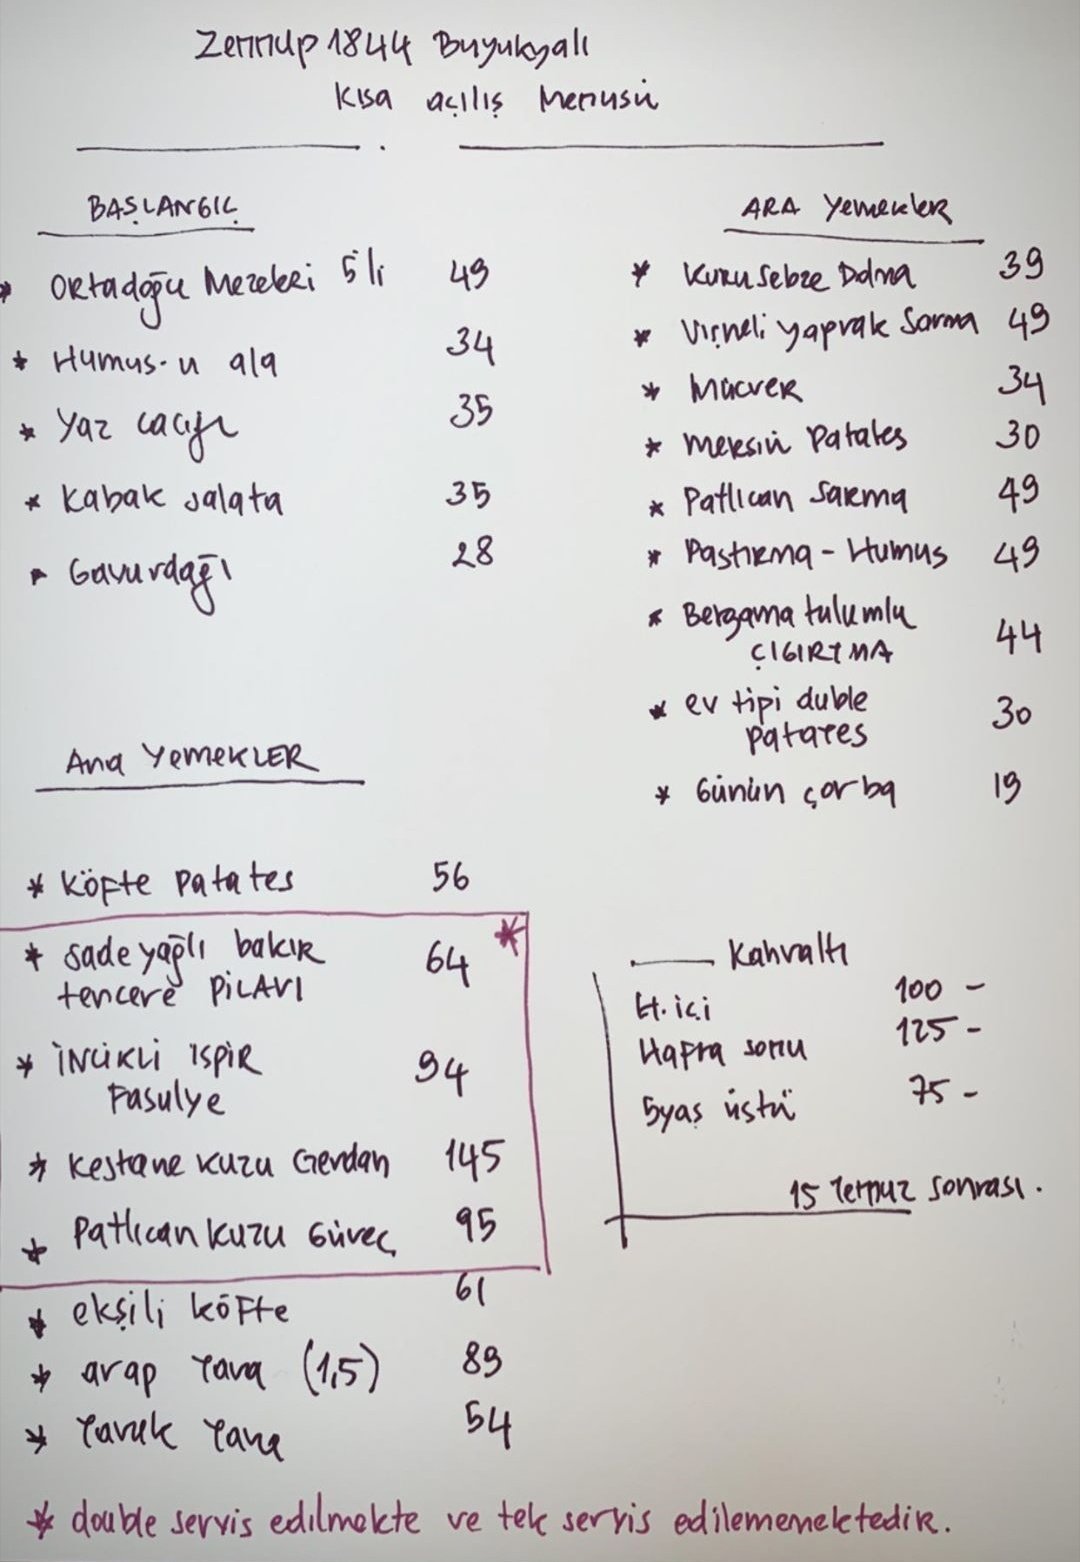 Zennup 1844 Büyükyalı
Kısa açılış Menüsü
BAŞLANGIÇ
* Ortadoğu Mezeleri 5'li 49
* Humus-u ala 34
* Yaz cacığı 35
* Kabak salata 35
* Gavurdağı 28
ARA Yemekler
* Kuru sebze Dolma 39
* Vişneli yaprak Sarma 49
* Mücver 34
* Mersin Patates 30
* Patlıcan Sarma 49
* Pastırma - Humus 49
* Bergama tulumlu
ÇIGIRTMA 44
* ev tipi duble
patates 30
* Günün çorba 19
Ana YEMEKLER
* Köfte patates 56
* Sade yağlı bakır 64 *
tencere PİLAVI
* İNCİKLİ ISPIR 94
Fasulye
* Kestane kuzu Gerdan 145
* Patlıcan kuzu Güveç 95
* ekşili köfte 61
* arap Tava (1,5) 89
* Tavuk Tava 54
Kahvaltı
H. içi 100 -
Hafta sonu 125 -
5 yaş üstü 75 -
15 Temmuz sonrası.
* double servis edilmekte ve tek servis edilememektedir.